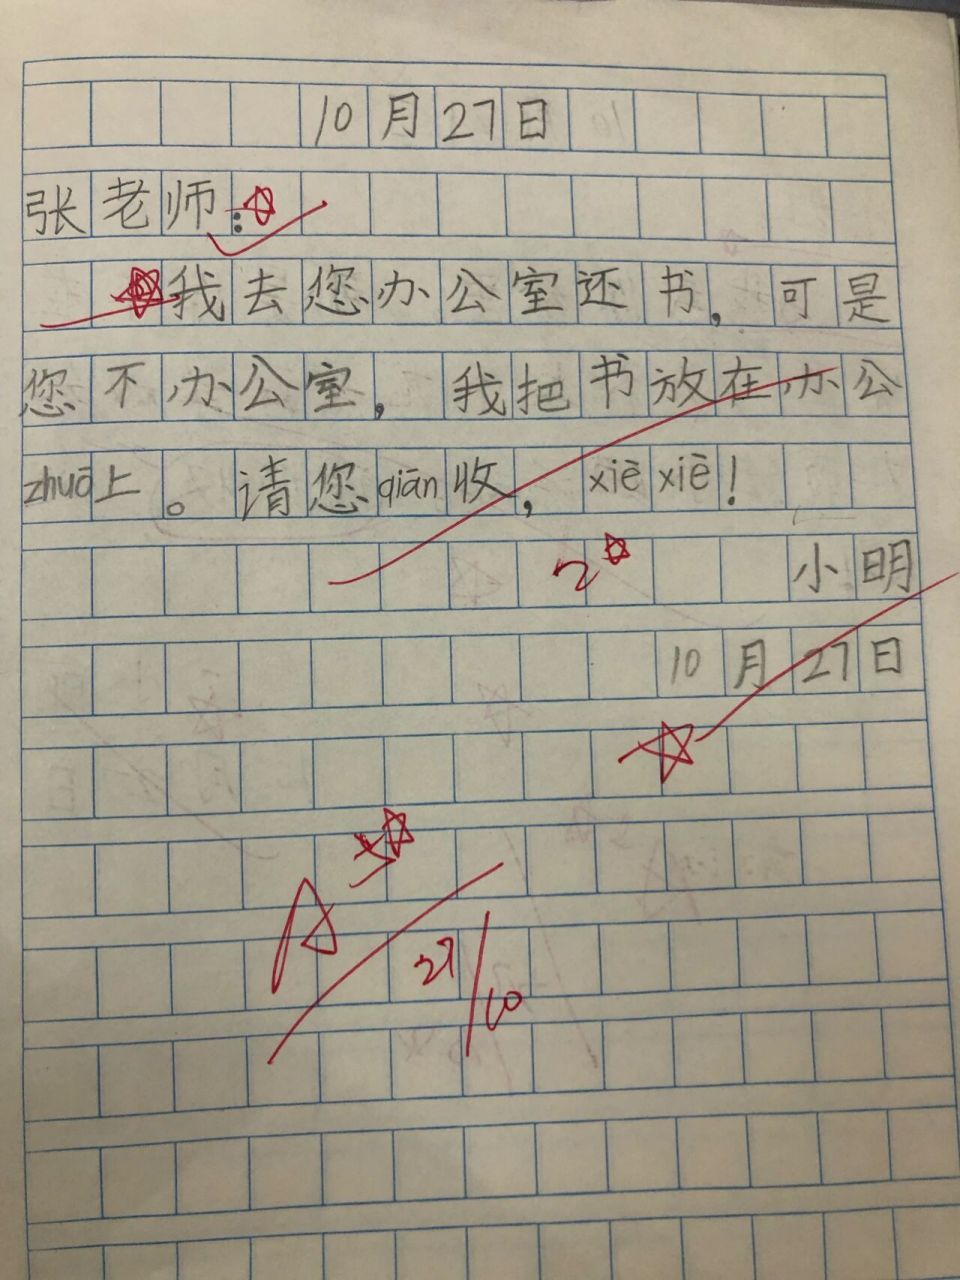 10月27日
张老师:
我去您办公室还书,可是
您不办公室,我把书放在办公
zhuō上。请您qiān收,xiè xiè!
2
小明
10月27日
5
A
27/10